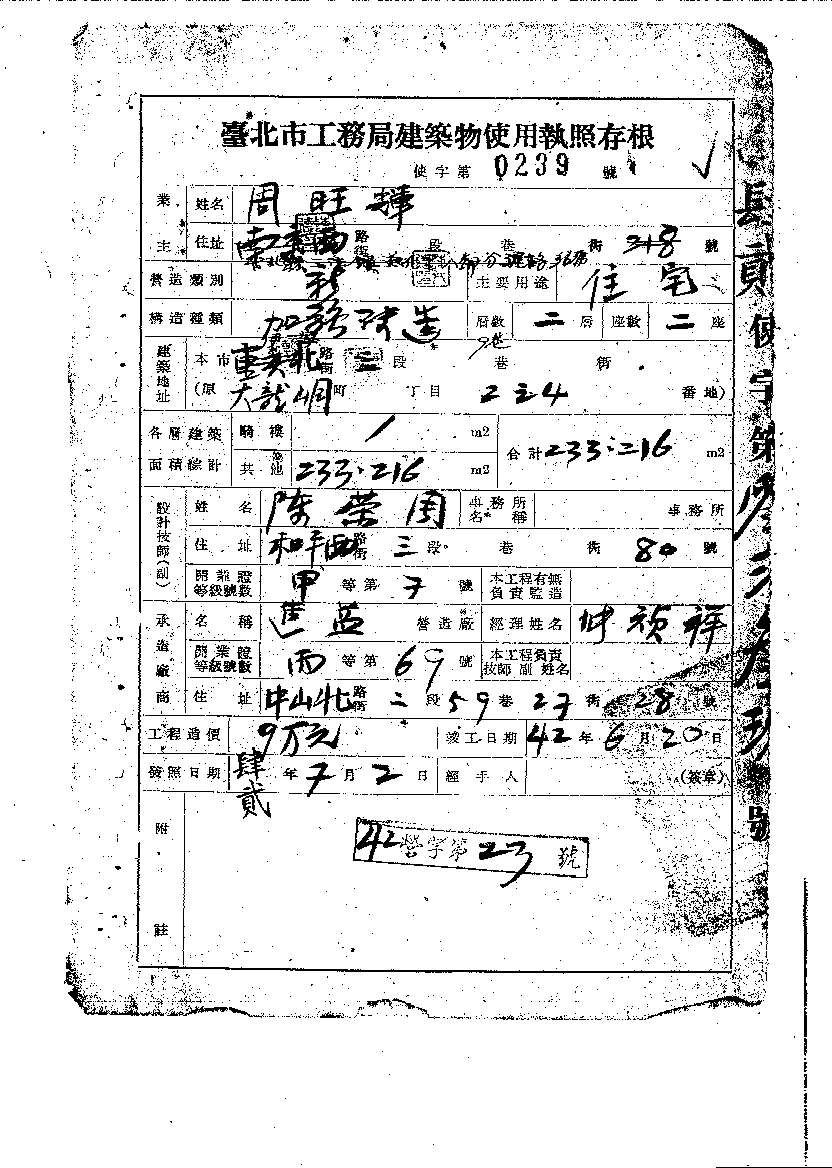 臺北市工務局建築物使用執照存根
使字第 0239 號
業主 姓名 周旺輝
住址 南京西路街 段 巷 街 318 號
營造類別 新 主要用途 住宅
構造種類 加強磚造 層數 二層 座數 二座
9巷
建築地址 本市 重慶北路街 三段 巷 街
(原 大龍峒町 丁目 224 番地)
各層建築面積總計 騎樓 / m2 合計 233.216 m2
共 233.216 m2
設計技師(副) 姓名 陳榮周 事務所名稱 事務所
住址 和平西路街 三段 巷 街 80 號
開業證等級號數 甲等第 7 號 本工程有無負責監造
承造廠商 名稱 進益 營造廠 經理姓名 林禎祥
開業證等級號數 丙等第 69 號 本工程負責技師副姓名
住址 中山北路街 二段 59 巷 27 街 28 號
工程造價 9万元 竣工日期 42年6月20日
發照日期 肆貳年7月2日 經手人 (簽章)
附註
42營字第23號
使字第 號